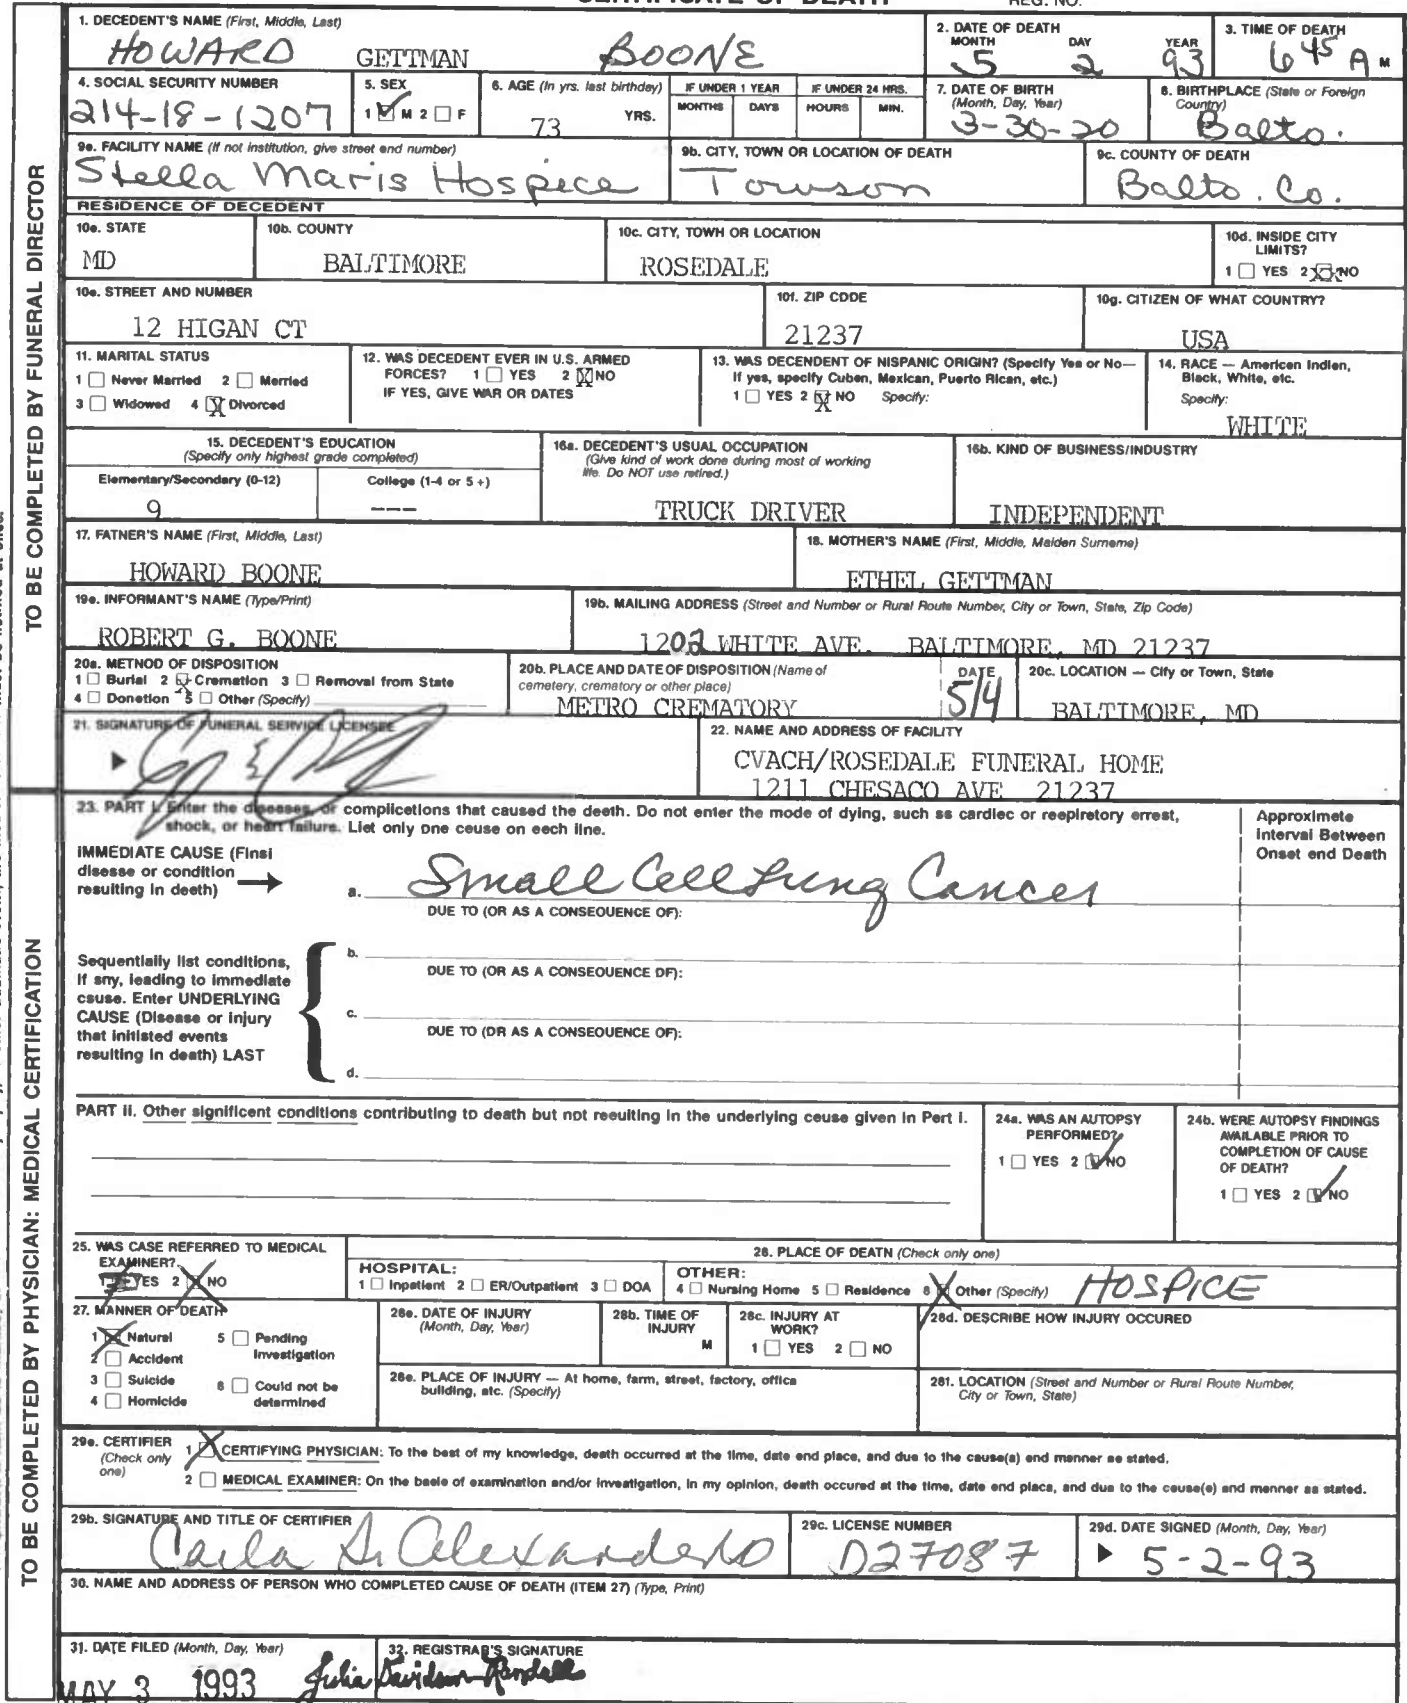 CERTIFICATE OF DEATH REG. NO.
1. DECEDENT'S NAME (First, Middle, Last)
HOWARD GETTMAN BOONE
2. DATE OF DEATH
MONTH DAY YEAR
5 2 93
3. TIME OF DEATH
6 45 A M
4. SOCIAL SECURITY NUMBER
214-18-1207
5. SEX
1 M 2 F
6. AGE (In yrs. last birthday)
73 YRS.
IF UNDER 1 YEAR
MONTHS DAYS
IF UNDER 24 HRS.
HOURS MIN.
7. DATE OF BIRTH
(Month, Day, Year)
3-30-20
8. BIRTHPLACE (State or Foreign
Country)
Balto.
9a. FACILITY NAME (If not institution, give street and number)
Stella Maris Hospice
9b. CITY, TOWN OR LOCATION OF DEATH
Towson
9c. COUNTY OF DEATH
Balto. Co.
RESIDENCE OF DECEDENT
10a. STATE
MD
10b. COUNTY
BALTIMORE
10c. CITY, TOWN OR LOCATION
ROSEDALE
10d. INSIDE CITY
LIMITS?
1 YES 2 NO
10e. STREET AND NUMBER
12 HIGAN CT
10f. ZIP CODE
21237
10g. CITIZEN OF WHAT COUNTRY?
USA
11. MARITAL STATUS
1 Never Married 2 Married
3 Widowed 4 X Divorced
12. WAS DECEDENT EVER IN U.S. ARMED
FORCES? 1 YES 2 X NO
IF YES, GIVE WAR OR DATES
13. WAS DECENDENT OF HISPANIC ORIGIN? (Specify Yes or No—
If yes, specify Cuban, Mexican, Puerto Rican, etc.)
1 YES 2 X NO Specify:
14. RACE — American Indian,
Black, White, etc.
Specify:
WHITE
15. DECEDENT'S EDUCATION
(Specify only highest grade completed)
Elementary/Secondary (0-12) College (1-4 or 5+)
9 ---
16a. DECEDENT'S USUAL OCCUPATION
(Give kind of work done during most of working
life. Do NOT use retired.)
TRUCK DRIVER
16b. KIND OF BUSINESS/INDUSTRY
INDEPENDENT
17. FATHER'S NAME (First, Middle, Last)
HOWARD BOONE
18. MOTHER'S NAME (First, Middle, Maiden Surname)
ETHEL GETTMAN
19a. INFORMANT'S NAME (Type/Print)
ROBERT G. BOONE
19b. MAILING ADDRESS (Street and Number or Rural Route Number, City or Town, State, Zip Code)
1202 WHITE AVE. BALTIMORE, MD 21237
20a. METHOD OF DISPOSITION
1 Burial 2 X Cremation 3 Removal from State
4 Donation 5 Other (Specify)
20b. PLACE AND DATE OF DISPOSITION (Name of
cemetery, crematory or other place)
METRO CREMATORY
DATE
5/4
20c. LOCATION — City or Town, State
BALTIMORE, MD
21. SIGNATURE OF FUNERAL SERVICE LICENSEE
22. NAME AND ADDRESS OF FACILITY
CVACH/ROSEDALE FUNERAL HOME
1211 CHESACO AVE 21237
23. PART I. Enter the diseases, or complications that caused the death. Do not enter the mode of dying, such as cardiac or respiratory arrest,
shock, or heart failure. List only one cause on each line.
Approximate
Interval Between
Onset and Death
IMMEDIATE CAUSE (Final
disease or condition
resulting in death)
a. Small Cell Lung Cancer
DUE TO (OR AS A CONSEQUENCE OF):
Sequentially list conditions,
if any, leading to immediate
cause. Enter UNDERLYING
CAUSE (Disease or injury
that initiated events
resulting in death) LAST
b.
DUE TO (OR AS A CONSEQUENCE OF):
c.
DUE TO (OR AS A CONSEQUENCE OF):
d.
PART II. Other significant conditions contributing to death but not resulting in the underlying cause given in Part I.
24a. WAS AN AUTOPSY
PERFORMED?
1 YES 2 NO
24b. WERE AUTOPSY FINDINGS
AVAILABLE PRIOR TO
COMPLETION OF CAUSE
OF DEATH?
1 YES 2 NO
25. WAS CASE REFERRED TO MEDICAL
EXAMINER?
YES 2 NO
26. PLACE OF DEATH (Check only one)
HOSPITAL:
1 Inpatient 2 ER/Outpatient 3 DOA
OTHER:
4 Nursing Home 5 Residence 6 Other (Specify) HOSPICE
27. MANNER OF DEATH
1 Natural 5 Pending
Investigation
2 Accident
3 Suicide 6 Could not be
determined
4 Homicide
28a. DATE OF INJURY
(Month, Day, Year)
28b. TIME OF
INJURY
M
28c. INJURY AT
WORK?
1 YES 2 NO
28d. DESCRIBE HOW INJURY OCCURED
28e. PLACE OF INJURY — At home, farm, street, factory, office
building, etc. (Specify)
28f. LOCATION (Street and Number or Rural Route Number,
City or Town, State)
29a. CERTIFIER
(Check only
one)
1 CERTIFYING PHYSICIAN: To the best of my knowledge, death occurred at the time, date and place, and due to the cause(s) and manner as stated.
2 MEDICAL EXAMINER: On the basis of examination and/or investigation, in my opinion, death occured at the time, date and place, and due to the cause(s) and manner as stated.
29b. SIGNATURE AND TITLE OF CERTIFIER
Carla S. Alexander
29c. LICENSE NUMBER
D27087
29d. DATE SIGNED (Month, Day, Year)
5-2-93
30. NAME AND ADDRESS OF PERSON WHO COMPLETED CAUSE OF DEATH (ITEM 27) (Type, Print)
31. DATE FILED (Month, Day, Year)
MAY 3 1993
32. REGISTRAR'S SIGNATURE
Julia Davidson-Randall
TO BE COMPLETED BY FUNERAL DIRECTOR
TO BE COMPLETED BY PHYSICIAN: MEDICAL CERTIFICATION